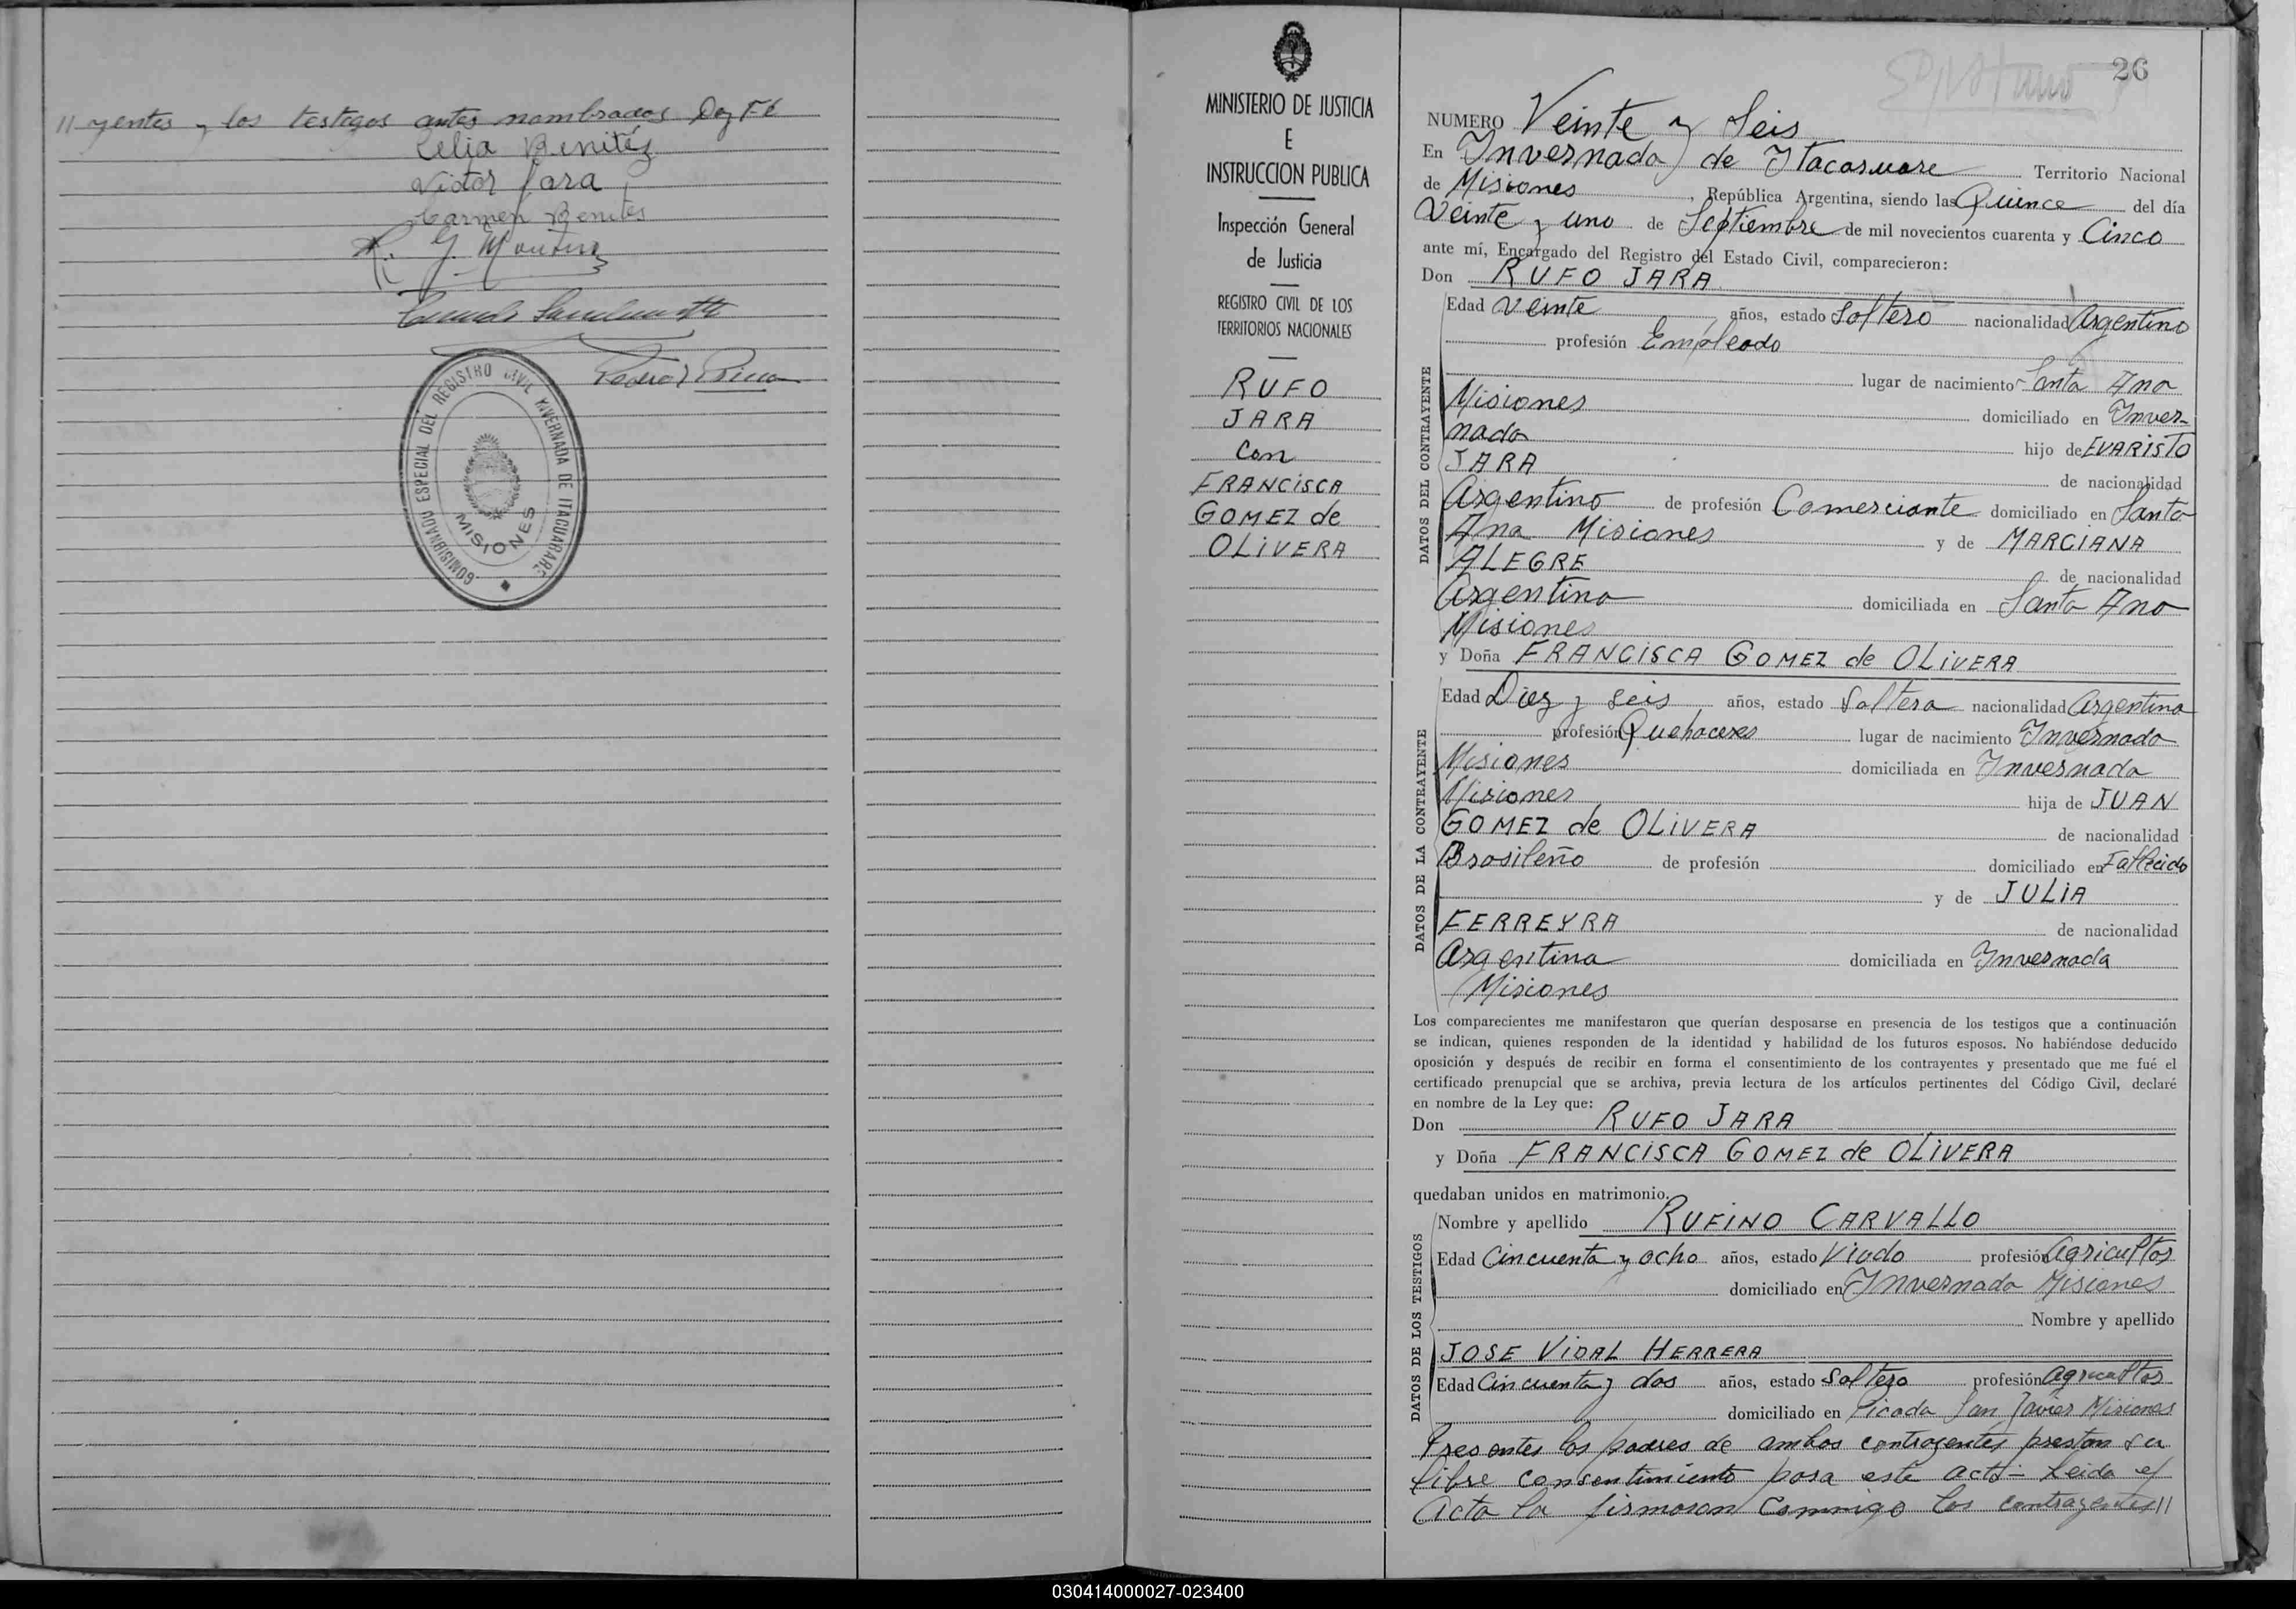 yentes y los testigos antes nombrados Doy Fé
Celia Benitéz
Victor Jara
Carmen Benites
COMISIONADO ESPECIAL DEL REGISTRO CIVIL INVERNADA DE ITACUARARE
MISIONES
MINISTERIO DE JUSTICIA
E
INSTRUCCION PUBLICA
Inspección General
de Justicia
REGISTRO CIVIL DE LOS
TERRITORIOS NACIONALES
RUFO
JARA
con
FRANCISCA
GOMEZ de
OLIVERA
26
NUMERO Veinte y Seis
En Invernada de Itacaruare Territorio Nacional
de Misiones, República Argentina, siendo las Quince del día
Veinte y uno de Septiembre de mil novecientos cuarenta y Cinco
ante mí, Encargado del Registro del Estado Civil, comparecieron:
Don RUFO JARA
Edad Veinte años, estado Soltero nacionalidad Argentino
profesión Empleado
lugar de nacimiento Santa Ana
Misiones domiciliado en Inver-
nada hijo de EVARISTO
JARA de nacionalidad
Argentino de profesión Comerciante domiciliado en Santa
Ana Misiones y de MARCIANA
ALEGRE de nacionalidad
Argentina domiciliada en Santa Ana
Misiones
y Doña FRANCISCA GOMEZ de OLIVERA
Edad Diez y seis años, estado Soltera nacionalidad Argentina
profesión Quehaceres lugar de nacimiento Invernada
Misiones domiciliada en Invernada
Misiones hija de JUAN
GOMEZ de OLIVERA de nacionalidad
Brasileño de profesión domiciliado en Fallecido
y de JULIA
FERREYRA de nacionalidad
Argentina domiciliada en Invernada
Misiones
Los comparecientes me manifestaron que querían desposarse en presencia de los testigos que a continuación
se indican, quienes responden de la identidad y habilidad de los futuros esposos. No habiéndose deducido
oposición y después de recibir en forma el consentimiento de los contrayentes y presentado que me fué el
certificado prenupcial que se archiva, previa lectura de los artículos pertinentes del Código Civil, declaré
en nombre de la Ley que:
Don RUFO JARA
y Doña FRANCISCA GOMEZ de OLIVERA
quedaban unidos en matrimonio.
Nombre y apellido RUFINO CARVALLO
Edad Cincuenta y ocho años, estado Viudo profesión Agricultor
domiciliado en Invernada Misiones
Nombre y apellido
JOSE VIDAL HERRERA
Edad Cincuenta y dos años, estado Soltero profesión Agricultor
domiciliado en Picada San Javier Misiones
Presentes los padres de ambos contrayentes prestan su
libre consentimiento para este acto- Leida el
Acta la firmaron conmigo los contrayentes //
DATOS DEL CONTRAYENTE
DATOS DE LA CONTRAYENTE
DATOS DE LOS TESTIGOS
030414000027-023400